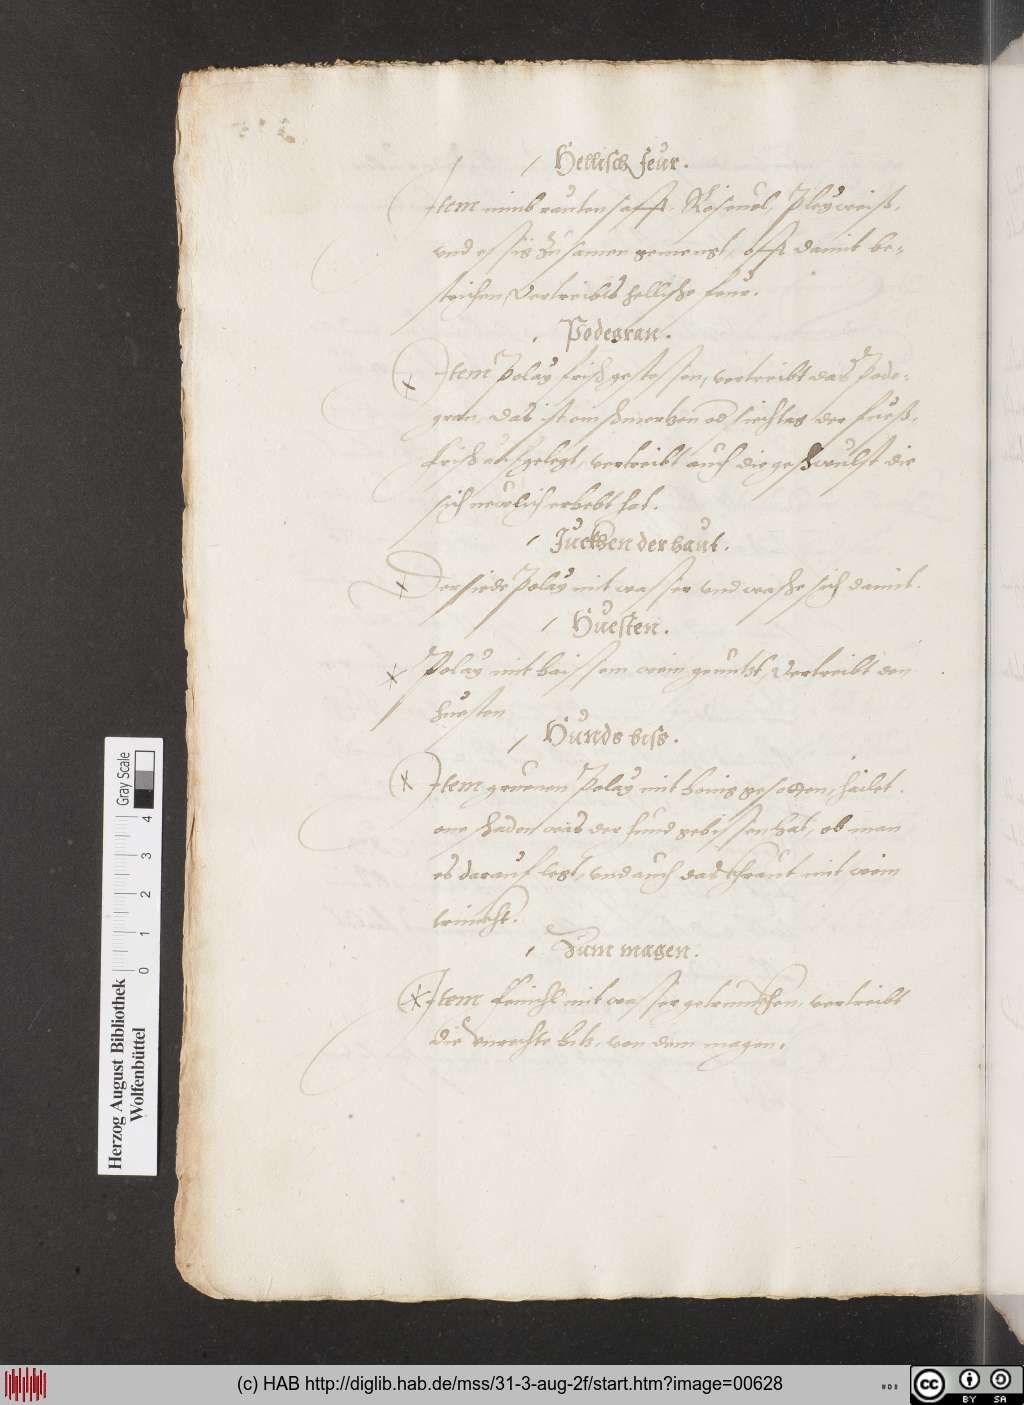 Hellisch feur.
Item nimb rautensafft, Rosenöl, Pleyweiß,
vnd essig zusamen gemengt, offt damit be-
strichen, Vertreibts hellische feur.
Podegran.
Item Polay frisch gestossen, vertreibt das Pode-
gran, das ist ein schmertzen od siechtag der fueß,
frisch aufgelegt, vertreibt auch die geschwulst die
sich newlich erhebt hat.
Juckhen der haut.
Der siede Polay mit wasser vnd wasche sich damit.
Huesten.
Polay mit haissem wein genutzt, Vertreibt den
huesten
Hunds biss.
Item gruenen Polay mit honig gesotten, hailet
one schaden was der hund gebissen hat, ob man
es darauf legt, vnd auch das khraut mit wein
trinckht.
Zum magen.
Item fenichl mit wasser getrunckhen, vertreibt
die vnrechte hitz, von dem magen.
Herzog August Bibliothek
Wolfenbüttel
0 1 2 3 4
Gray Scale
(c) HAB http://diglib.hab.de/mss/31-3-aug-2f/start.htm?image=00628
cc
BY SA